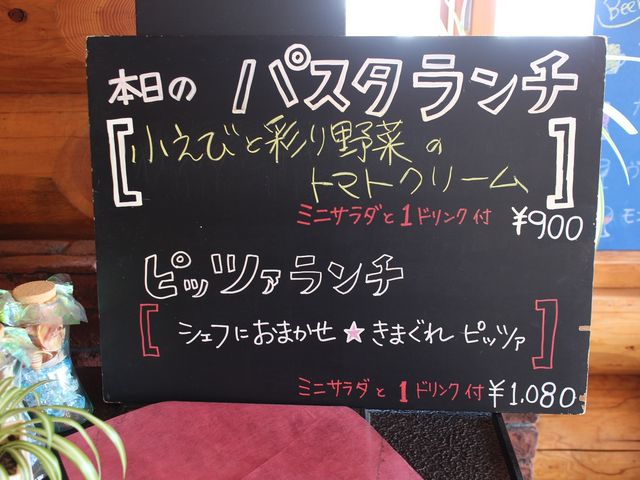 本日の パスタランチ
[小えびと彩り野菜の
トマトクリーム]
ミニサラダと1ドリンク付 ¥900
ピッツァランチ
[シェフにおまかせ★きまぐれ ピッツァ]
ミニサラダと1ドリンク付 ¥1.080
Bee